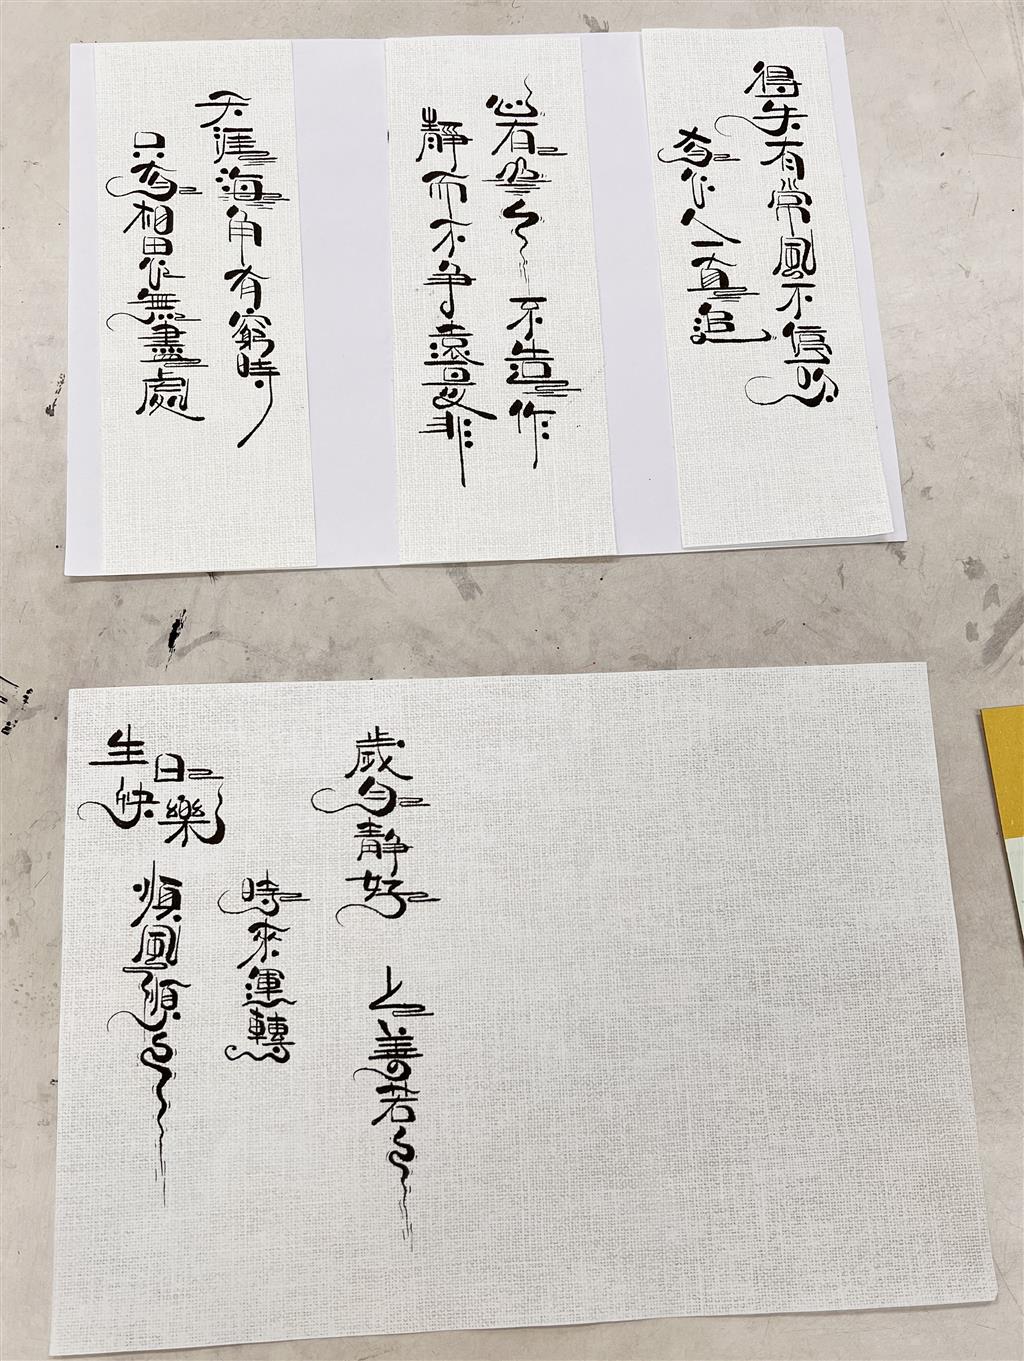 得失有常風不停吹
有心人一直追
心有山水不造作
靜而不爭遠是非
天涯海角有窮時
只有相思無盡處
歲月靜好
上善若水
生日快樂
時來運轉
順風順水